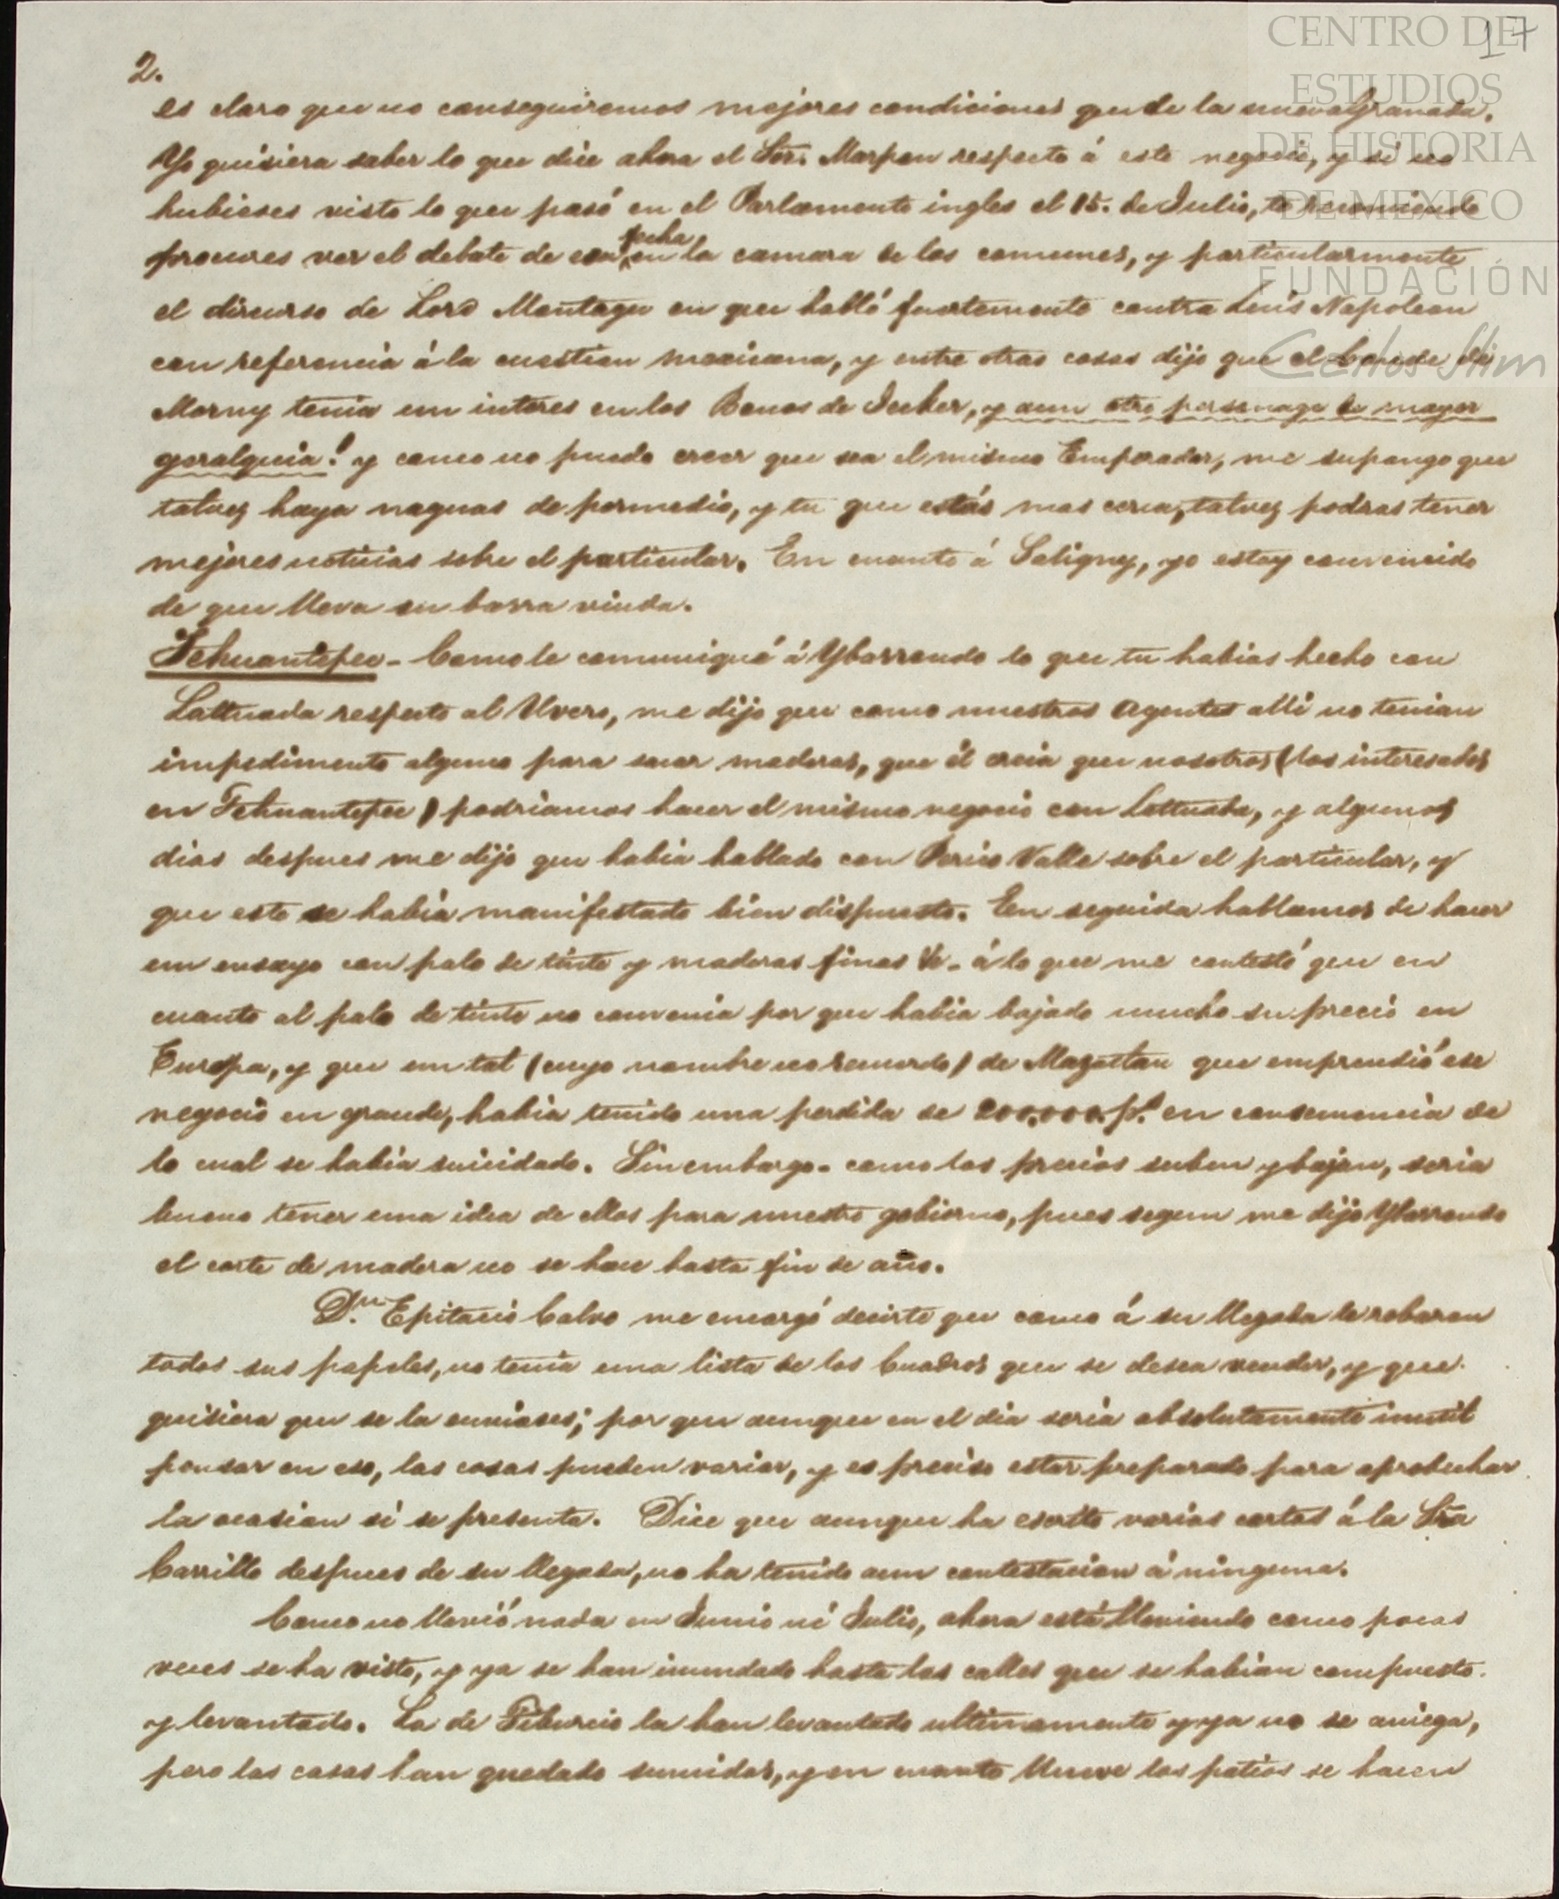 CENTRO DE
ESTUDIOS
DE HISTORIA
DE MÉXICO
FUNDACIÓN
Carlos Slim
17
2.
es claro que no conseguiremos mejores condiciones que de la nueva Granada.
Yo quisiera saber lo que dice ahora el Sor. Marpon respecto á este negocio, y si no
hubieses visto lo que pasó en el Parlamento ingles el 15. de Julio, te recomiendo
procures ver el debate de esa fecha en la camara de los comunes, y particularmente
el dircurso de Lord Montagu en que habló fuertemente contra Luis Napoleon
con referencia á la cuestion mexicana, y entre otras cosas dijo que el Conde de
Morny tenia un interes en los Bonos de Jecker, y aun otro personage de mayor
geralquia! y como no puedo creer que sea el mismo Emperador, me supongo que
talvez haya naguas de pormedio, y tu que estás mas cerca, talvez podras tener
mejores noticias sobre el particular. En cuanto á Saligny, yo estoy convencido
de que lleva su barra viuda.
Tehuantepec - Como le comuniqué á Ybarrondo lo que tu habias hecho con
Lattuada respecto al Uvero, me dijo que como nuestros Agentes allí no tenian
impedimento alguno para sacar maderas, que él creia que nosotros (los interesados
en Tehuantepec) podriamos hacer el mismo negocio con Lattuada, y algunos
dias despues me dijo que habia hablado con Perico Valle sobre el particular, y
que este se habia manifestado bien dispuesto. En seguida hablamos de hacer
un ensayo con palo de tinte y maderas finas &c. á lo que me contestó que en
cuanto al palo de tinte no convenia por que habia bajado mucho su precio en
Europa, y que un tal (cuyo nombre no recuerdo) de Mazatlan que emprendió ese
negocio en grande, habia tenido una perdida de 200,000. ps. en consecuencia de
lo cual se habia suicidado. Sinembargo. como los precios suben y bajan, seria
bueno tener una idea de ellos para nuestro gobierno, pues segun me dijo Ybarrondo
el corte de madera no se hace hasta fin de año.
Dn. Epitacio Calvo me encargó decirte que como á su llegada le robaron
todos sus papeles, no tenia una lista de los Cuadros que se desea vender, y que
quisiera que se la enviases; por que aunque en el dia seria absolutamente inutil
pensar en eso, las cosas pueden variar, y es preciso estar preparado para aprobechar
la ocasion si se presenta. Dice que aunque ha escrito varias cartas á la Sra
Carrillo despues de su llegada, no ha tenido aun contestacion á ninguna.
Como no llovió nada en Junio ni Julio, ahora está lloviendo como pocas
veces se ha visto, y ya se han inundado hasta las calles que se habian compuesto
y levantado. La de Tiburcio la han levantado ultimamente y ya no se aniega,
pero las casas han quedado sumidas, y en cuanto llueve los patios se hacen